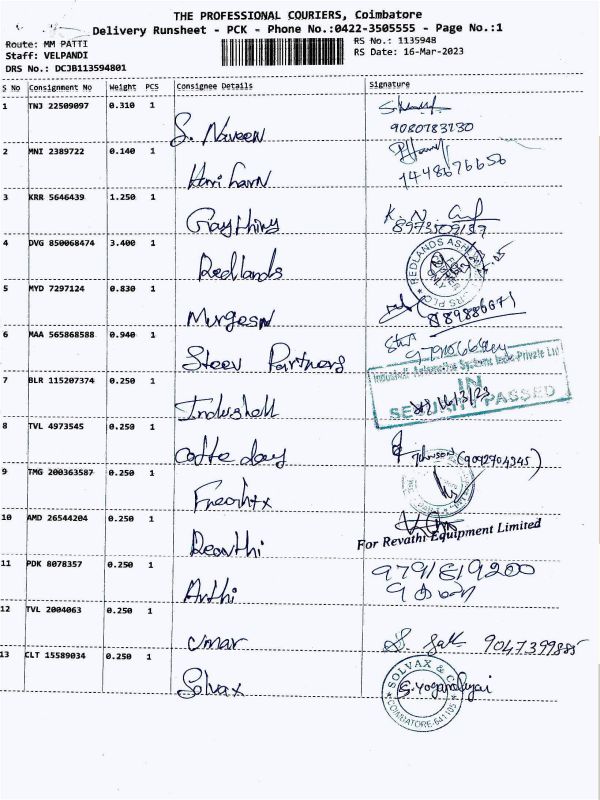 THE PROFESSIONAL COURIERS, Coimbatore
Delivery Runsheet - PCK - Phone No.:0422-3505555 - Page No.:1
Route: MM PATTI
RS No.: 1135948
Staff: VELPANDI
RS Date: 16-Mar-2023
DRS No.: DCJB113594801
S No Consignment No Weight PCS Consignee Details Signature
1 TNJ 22509097 0.310 1
S. Naveen
9080783730
2 MNI 2389722 0.140 1
Hari haran
3 KRR 5646439 1.250 1
K. N.
4 DVG 850068474 3.400 1
Redlands
REDLANDS
5 MYD 7297124 0.830 1
Murgesan
6 MAA 565868588 0.940 1
Steev Partners
7 BLR 115207374 0.250 1
Industrial Automotive Systems India Private Ltd
IN
SECURITY PASSED
8 TVL 4973545 0.250 1
Coffe day
Johnson (9092704345)
9 TMG 200363587 0.250 1
10 AMD 26544204 0.250 1
For Revathi Equipment Limited
11 PDK 8078357 0.250 1
Arthi
9791619200
12 TVL 2004063 0.250 1
Umar
9047399885
13 CLT 15589034 0.250 1
Solvax
SOLVAX & CO
COIMBATORE-641105